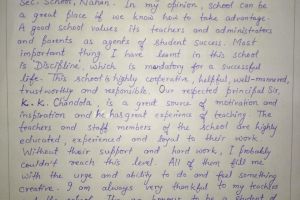 Sec. School, Nahan. In my opinion, school can be
a great place if we know how to take advantage.
A good school values its teachers and administrators
and parents as agents of student success. Most
important thing I have learnt in this school
is 'Discipline', which is mandatory for a successful
life. This school is highly cooperative, helpful, well-mannered,
trustworthy and responsible. Our respected principal Sir,
K. K. Chandola, is a great source of motivation and
inspiration and he has great experience of teaching. The
teachers and staff members of the school are highly
educated, experienced and loyal to their work.
Without their support and hard work, I probably
couldn't reach this level. All of them fill me
with the urge and ability to do and feel something
creative. I am always very thankful to my teachers